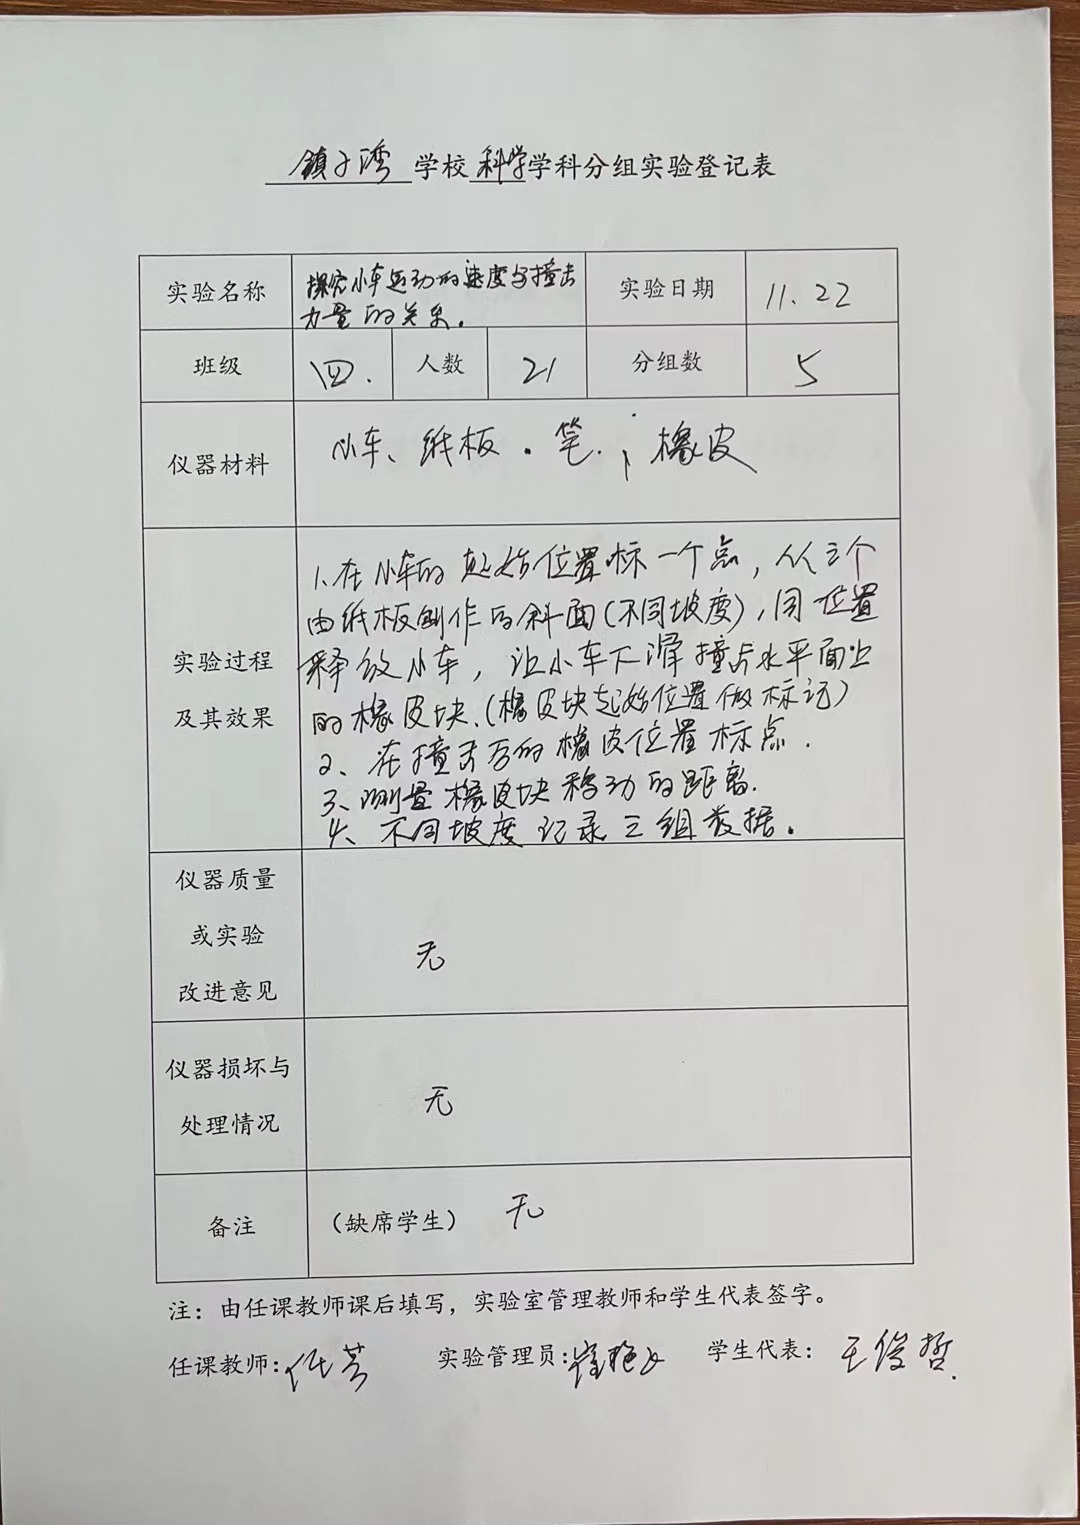 镇子湾 学校 科学 学科分组实验登记表
实验名称 探究小车运动的速度与撞击
力量的关系。 实验日期 11.22
班级 四. 人数 21 分组数 5
仪器材料 小车、纸板.笔.,橡皮
实验过程
及其效果
1、在小车的起始位置标一个点,从三个
由纸板制作的斜面(不同坡度),同位置
释放小车,让小车下滑撞击水平面上
的橡皮块、(橡皮块起始位置做标记)
2、在撞击后的橡皮位置标点.
3、测量橡皮块移动的距离.
4、不同坡度记录三组数据。
仪器质量
或实验
改进意见
无
仪器损坏与
处理情况
无
备注 (缺席学生) 无
注:由任课教师课后填写,实验室管理教师和学生代表签字。
任课教师:任芳 实验管理员: 学生代表:王俊哲.